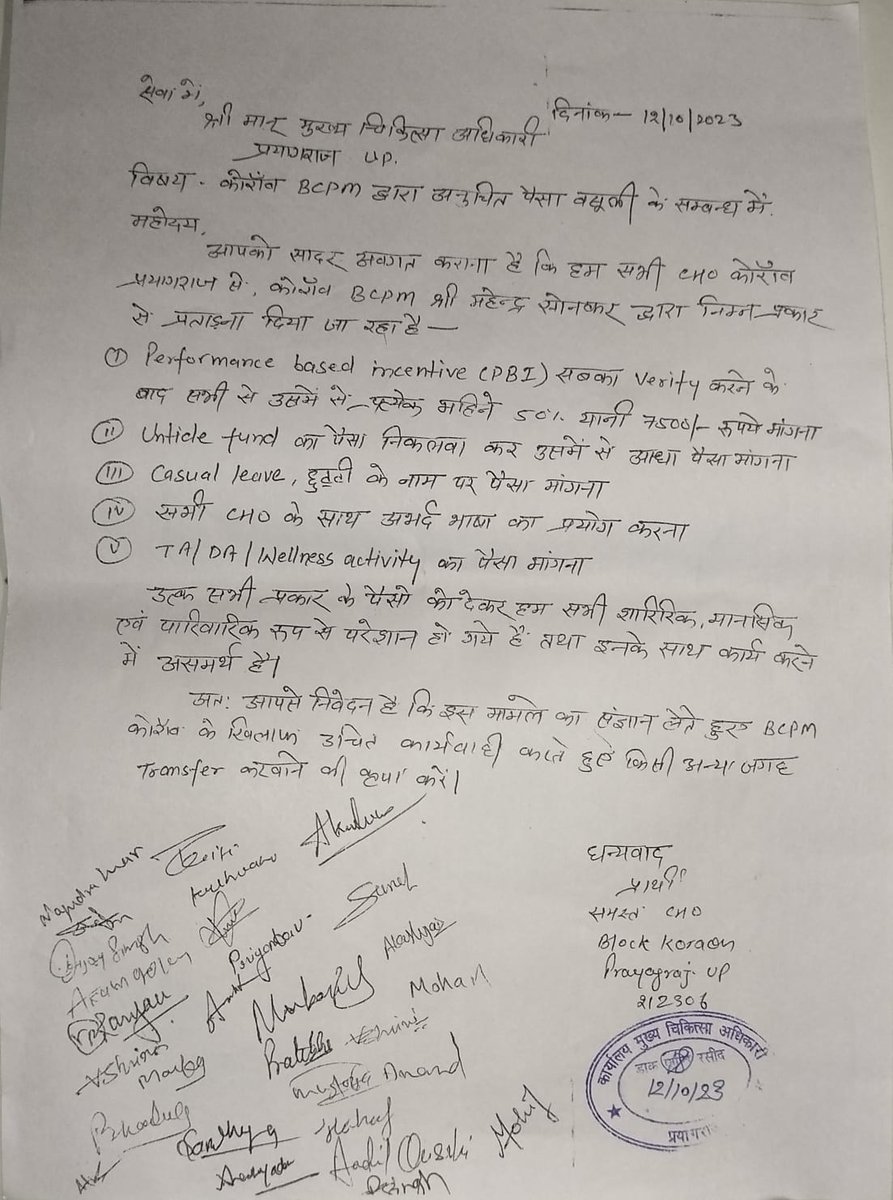 सेवा में,
दिनांक- 12/10/2023
श्री मान् मुख्य चिकित्सा अधिकारी
प्रयागराज UP.
विषय - कोराँव BCPM द्वारा अनुचित पैसा वसूली के सम्बन्ध में.
महोदय,
आपको सादर अवगत कराना है कि हम सभी CHO कोराँव
प्रयागराज से, कोराँव BCPM श्री महेन्द्र सोनकर द्वारा निम्न प्रकार
से प्रताड़ना दिया जा रहा है —
(I) Performance based incentive (PBI) सबका Verity करने के
बाद सभी से उसमें से प्रत्येक महिने 50% यानी 7500/- रुपये मांगना
(II) Untide fund का पैसा निकलवा कर उसमें से आधा पैसा मांगना
(III) Casual leave, छुट्टी के नाम पर पैसा मांगना
(IV) सभी CHO के साथ अभर्द भाषा का प्रयोग करना
(V) TA/DA/Wellness activity का पैसा मांगना
उक्त सभी प्रकार के पैसो को देकर हम सभी शारिरिक, मानसिक
एवं पारिवारिक रूप से परेशान हो गये है तथा इनके साथ कार्य करने
में असमर्थ है।
अत: आपसे निवेदन है कि इस मामले का संज्ञान लेते हुए BCPM
कोराँव के खिलाफ उचित कार्यवाही करते हुये किसी अन्या जगह
Transfer करवाने की कृपा करें।
धन्यवाद
प्रार्थी
समस्त CHO
Block Koraon
Prayagraj UP
212306
कार्यालय मुख्य चिकित्सा अधिकारी
डाक प्राप्ति रसीद
12/10/23
प्रयागरा
Ajay Singh
Priyanka
Mohan
Anand
Sandhya
Mohit